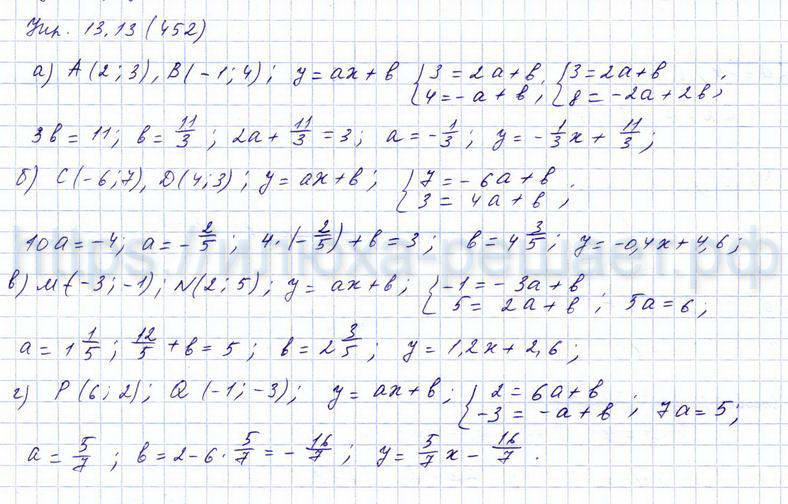 Упр. 13.13 (452)
а) A(2;3), B(-1;4); y=ax+b {3=2a+b; 4=-a+b; {3=2a+b; 8=-2a+2b;
3b=11; b=11/3; 2a+11/3=3; a=-1/3; y=-1/3x+11/3;
б) C(-6;7), D(4;3); y=ax+b; {7=-6a+b; 3=4a+b;
10a=-4; a=-2/5; 4·(-2/5)+b=3; b=4 3/5; y=-0,4x+4,6;
в) M(-3;-1); N(2;5); y=ax+b; {-1=-3a+b; 5=2a+b; 5a=6;
a=1 1/5; 12/5+b=5; b=2 3/5; y=1,2x+2,6;
г) P(6;2); Q(-1;-3); y=ax+b; {2=6a+b; -3=-a+b; 7a=5;
a=5/7; b=2-6·5/7=-16/7; y=5/7x-16/7.